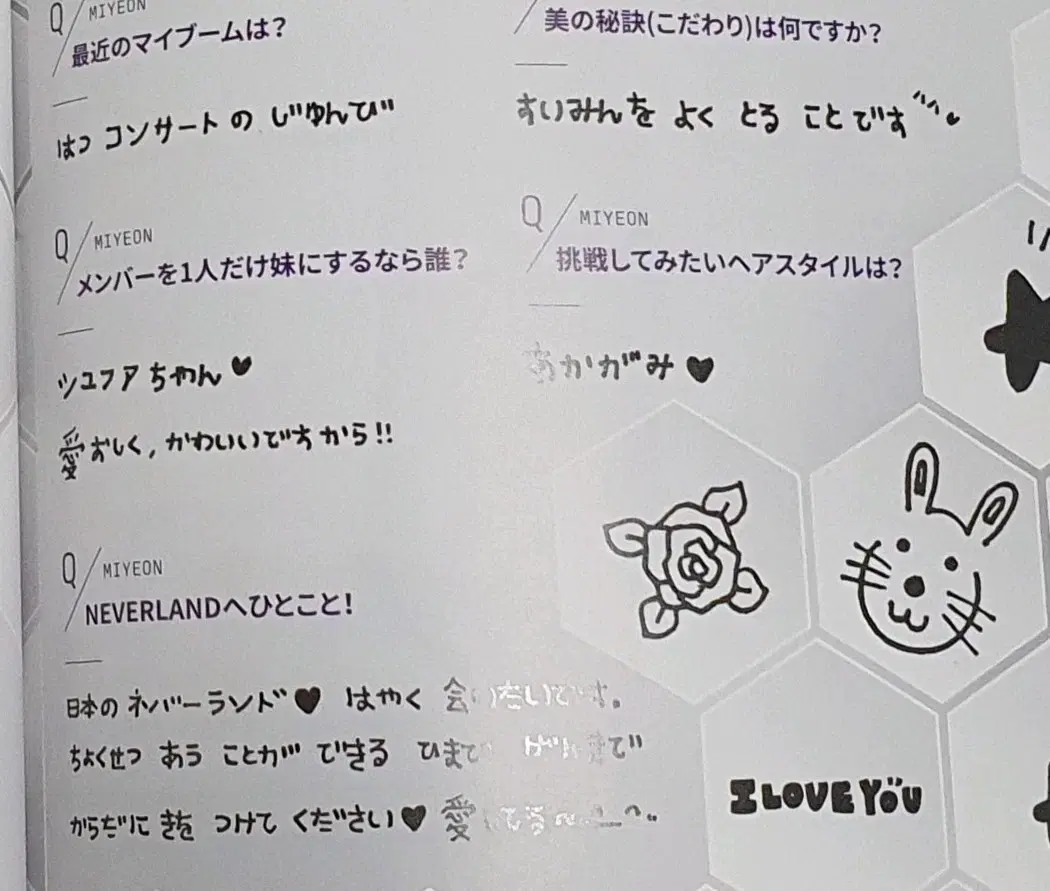 Q/MIYEON
最近のマイブームは?
はつ コンサート の じゅんび
Q/MIYEON
メンバーを1人だけ妹にするなら誰?
シュファ ちゃん♥
愛おしく,かわいいですから!!
Q/MIYEON
NEVERLANDへひとこと!
日本の ネバーランド♥ はやく 会いたいです。
ちょくせつ あう ことが できる ひまで
からだに きを つけて ください♥ 愛してる~
美の秘訣(こだわり)は何ですか?
すいみんを よく とる ことです
Q/MIYEON
挑戦してみたいヘアスタイルは?
あかがみ♥
I LOVE YOU